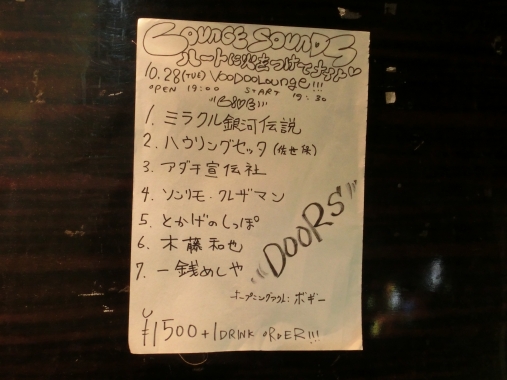 LOUNGE SOUNDS
ハートに火をつけてナイト
10.28(TUE) VOODOO LOUNGE!!!
OPEN 19:00 START 19:30
"LIVE"
1. ミラクル銀河伝説
2. ハウリングセッタ(佐世保)
3. アダチ宣伝社
4. ソンリモ・クレザマン
5. とかげのしっぽ
6. 木藤和也
7. 一銭めしや
"DOORS"
オープニングアクト: ボギー
¥1500+1DRINK ORDER!!!